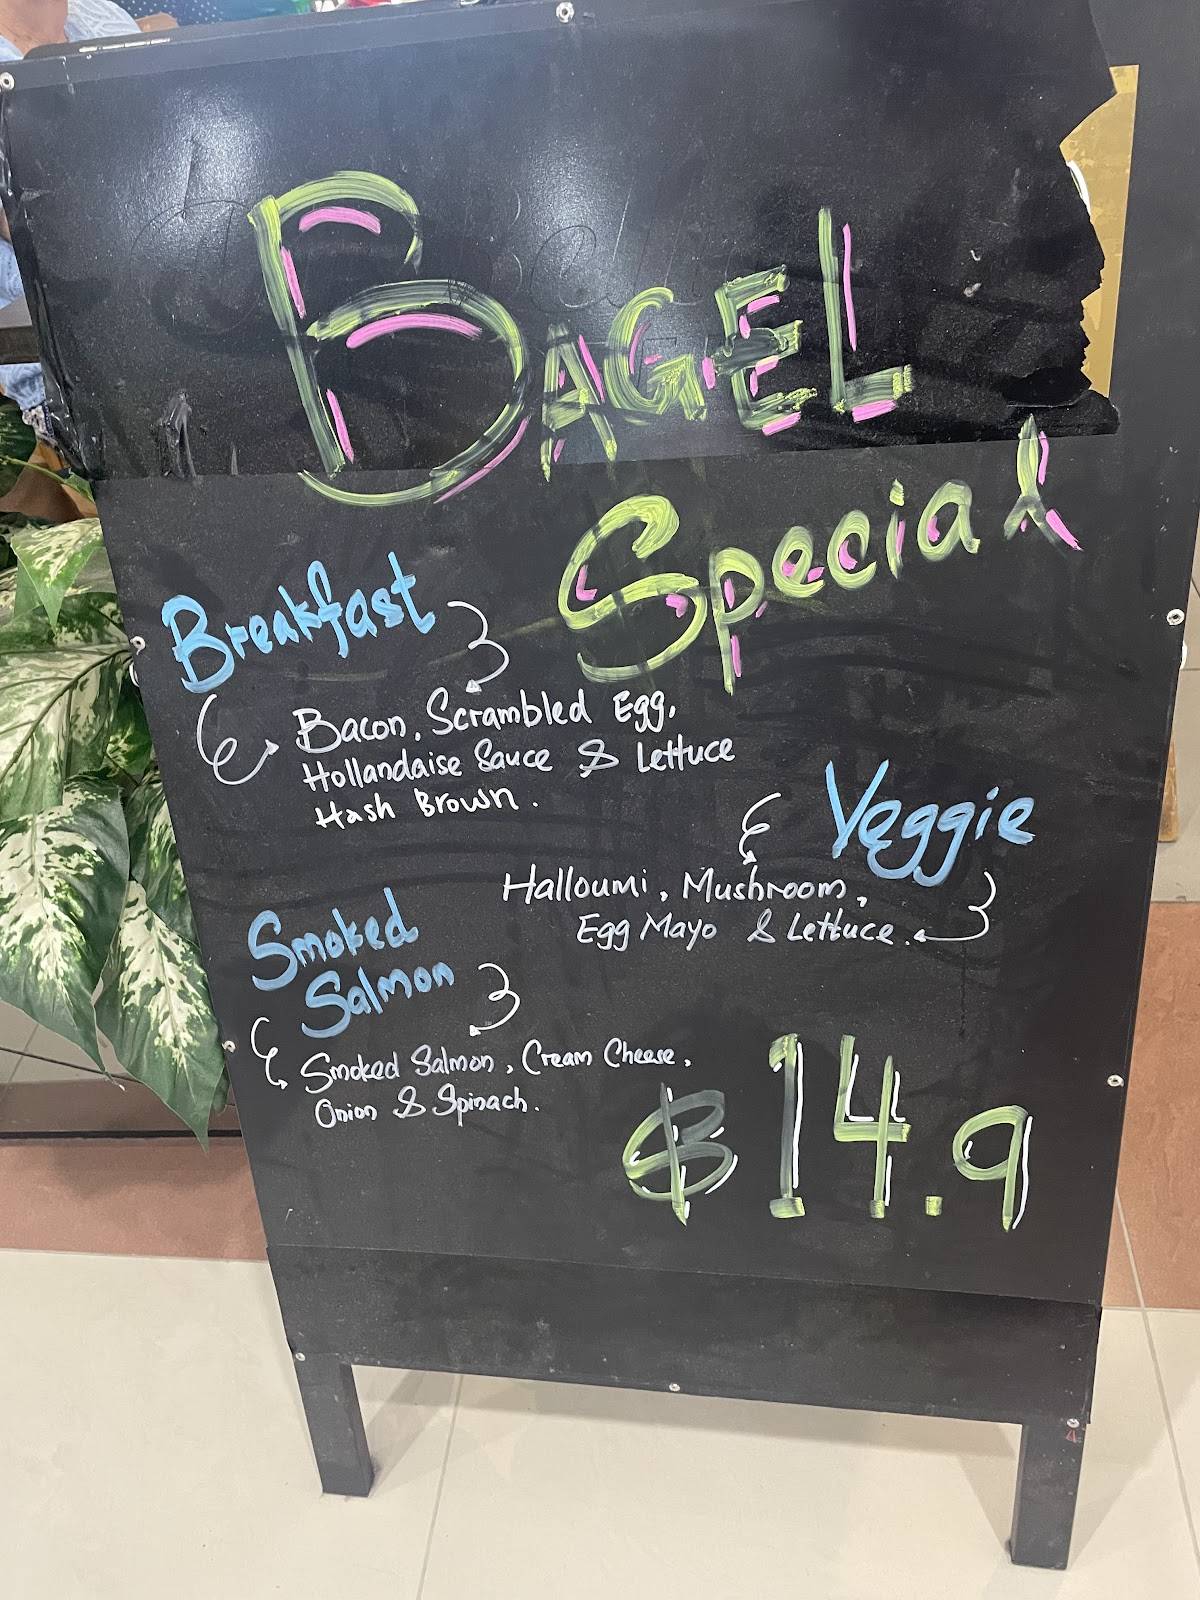 BAGEL
Special
Breakfast
Bacon, Scrambled Egg,
Hollandaise Sauce & Lettuce
Hash Brown.
Veggie
Halloumi, Mushroom,
Egg Mayo & Lettuce.
Smoked
Salmon
Smoked Salmon, Cream Cheese,
Onion & Spinach.
$14.9